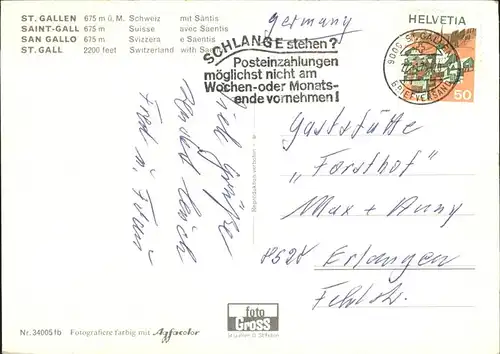 ST. GALLEN 675 m ü. M. Schweiz mit Säntis
SAINT-GALL 675 m Suisse avec Saentis
SAN GALLO 675 m Svizzera e Saentis
ST. GALL 2200 feet Switzerland with Saentis
germany
SCHLANGE stehen?
Posteinzahlungen
möglichst nicht am
Wochen- oder Monats-
ende vornehmen!
HELVETIA
50
9000 ST. GALLEN
BRIEFVERSAND
Viel Grüße
Fred u.
Gaststätte
"Forsthof"
Max + Anny
8520 Erlangen
Reproduktion verboten
foto
Gross
St. Gallen
Nr. 34005 1b Fotografiere farbig mit Agfacolor